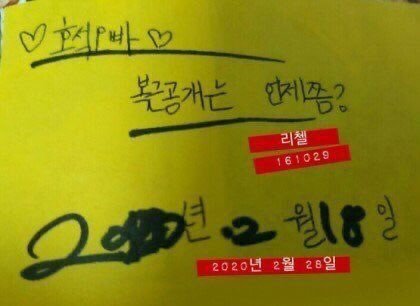 ♡ 호석오빠 ♡
복근공개는 언제쯤?
리첼
161029
2020년 2월 18일
2020년 2월 28일